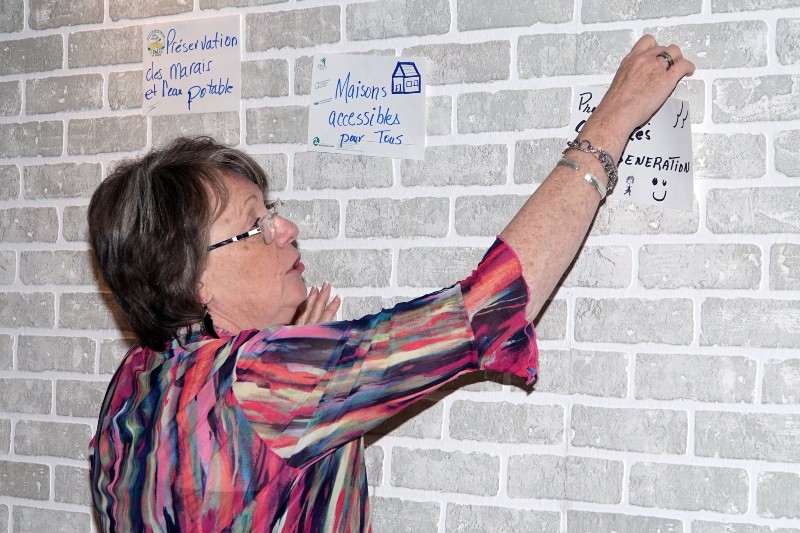 Préservation
des Marais
et l'eau potable
Maisons
accessibles
pour Tous
GENERATION